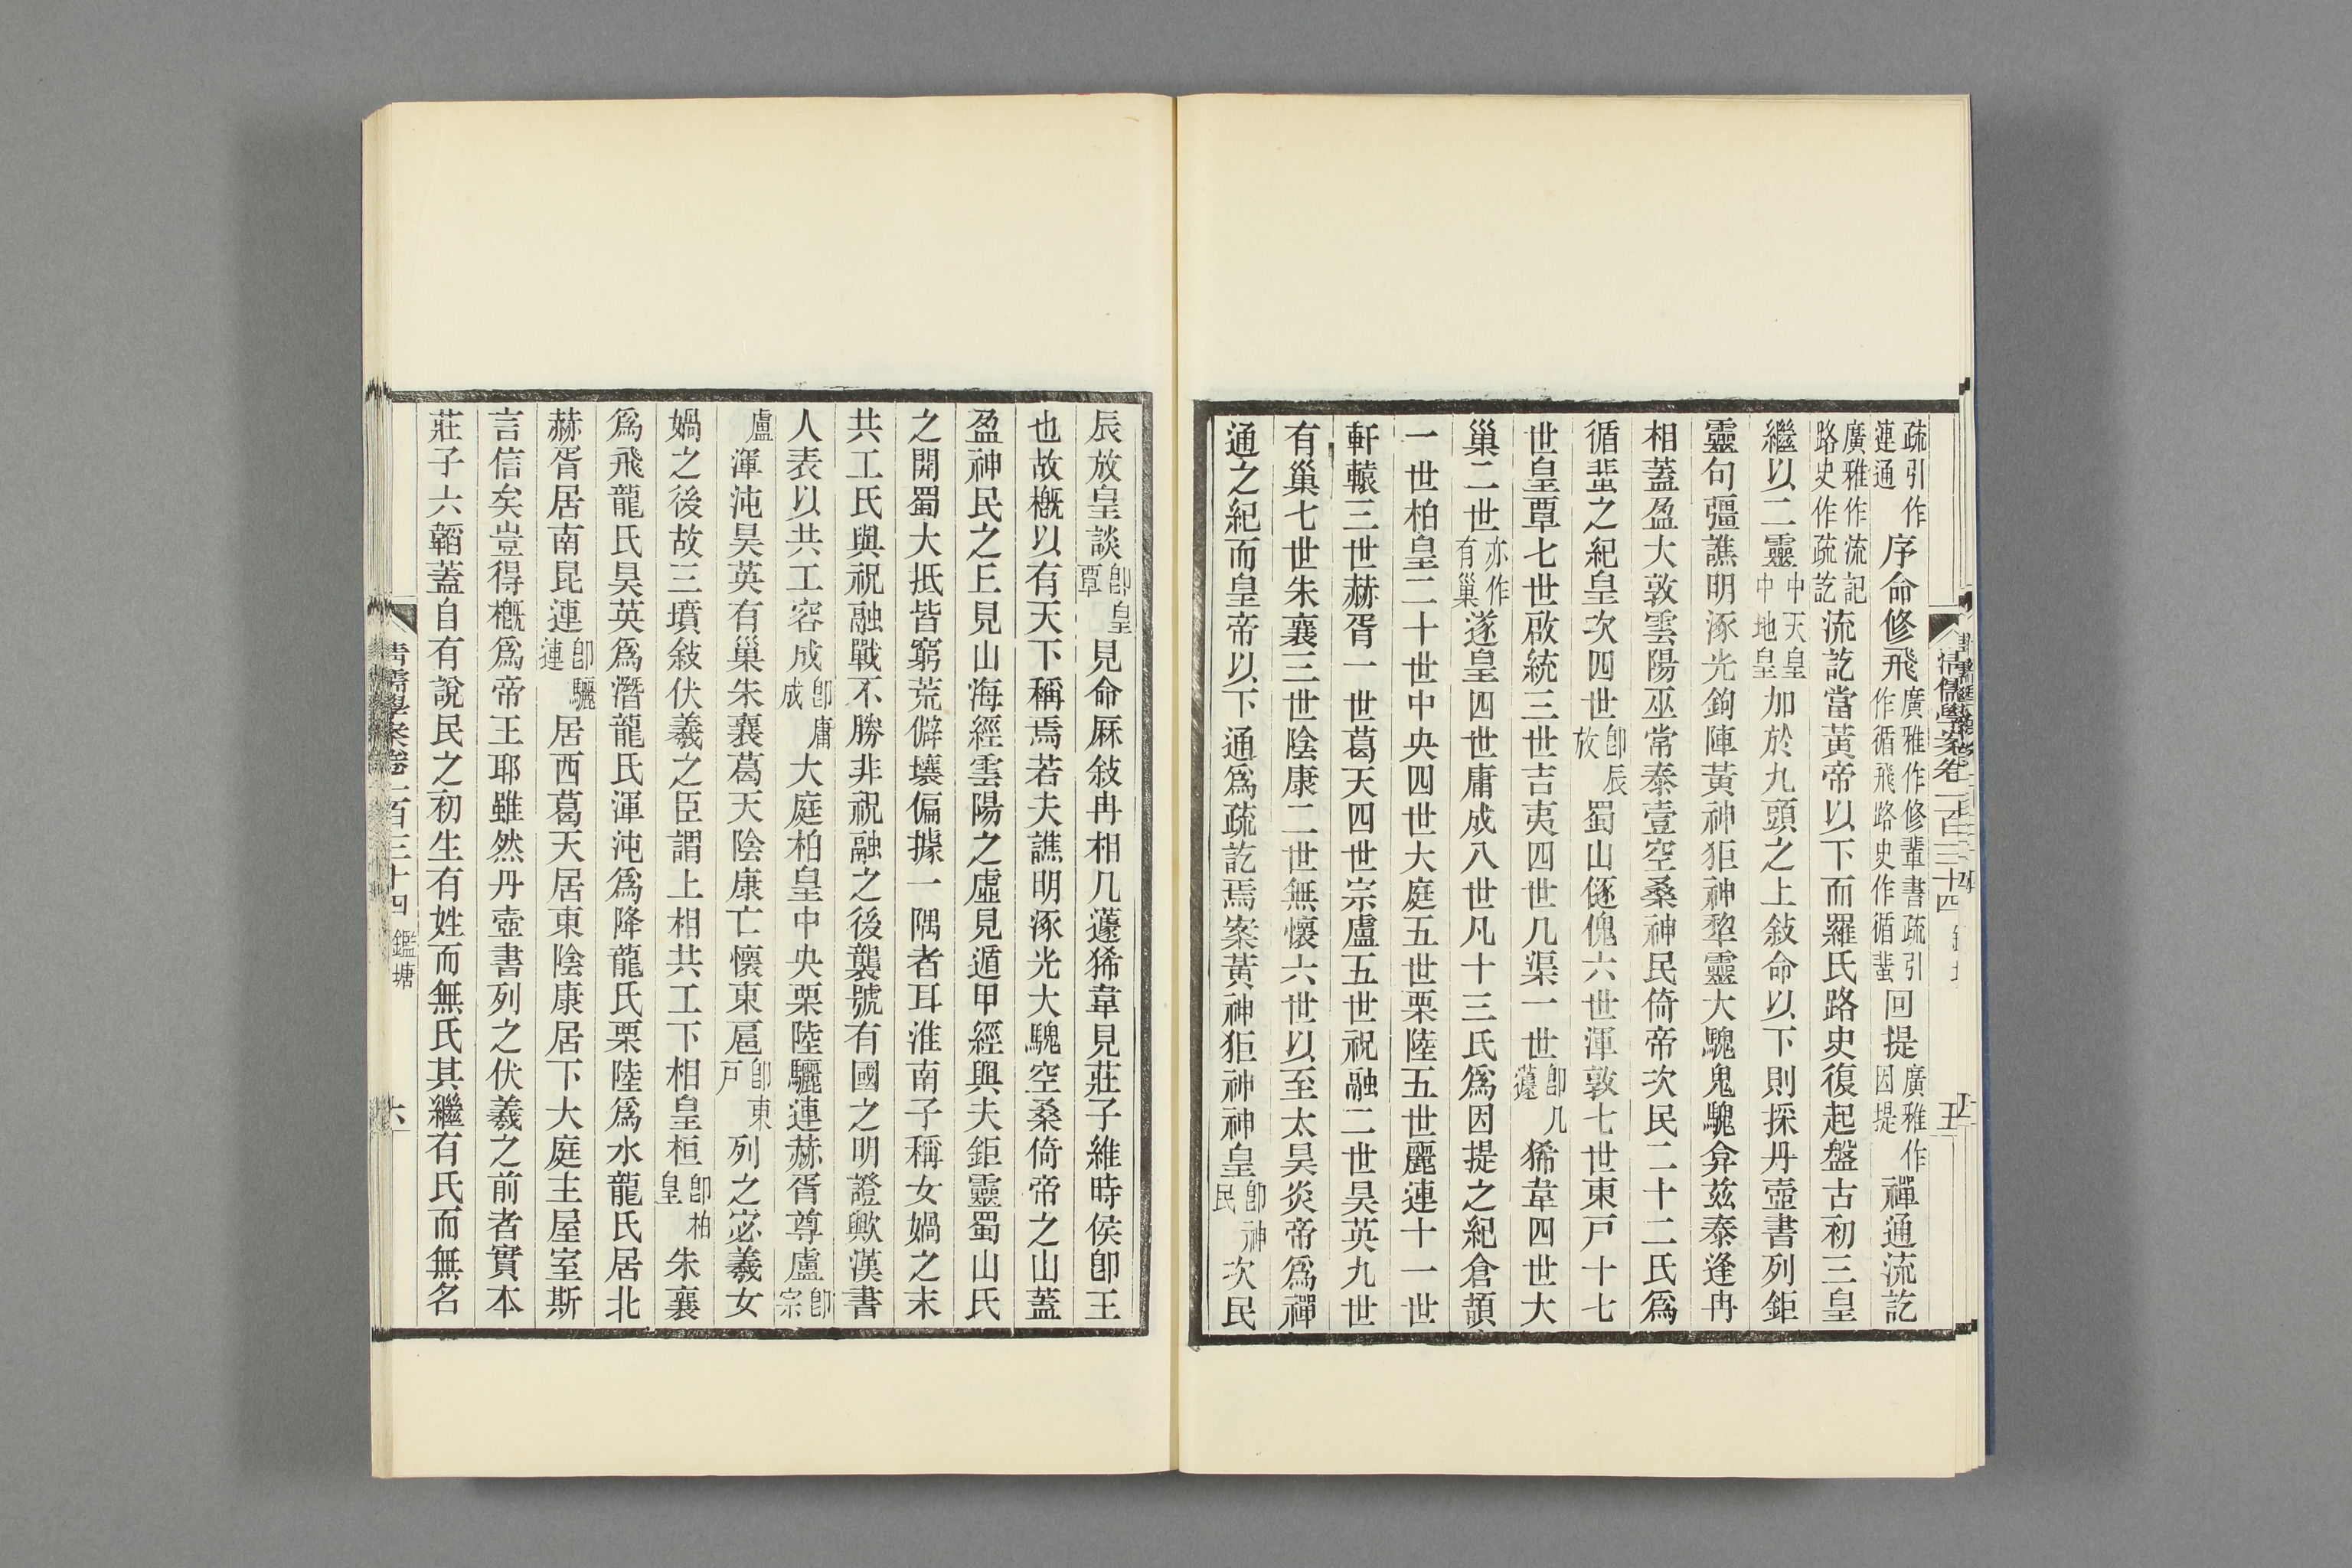 疏引作連通序命修飛廣雅作修輩書疏引作循飛路史作循蜚回提廣雅作因提禪通流訖
廣雅作流記路史作疏訖流訖當黃帝以下而羅氏路史復起盤古初三皇
繼以二靈中天皇中地皇加於九頭之上敍命以下則採丹壺書列鉅
靈句彊譙明涿光鉤陣黃神狟神犂靈大騩鬼騩弇茲泰逢冉
相蓋盈大敦雲陽巫常泰壹空桑神民倚帝次民二十二氏爲
循蜚之紀皇次四世卽辰放蜀山傂傀六世渾敦七世東戸十七
世皇覃七世啟統三世吉夷四世几渠一世卽几蘧狶韋四世大
巢二世亦作有巢遂皇四世庸成八世凡十三氏爲因提之紀倉頡
一世柏皇二十世中央四世大庭五世栗陸五世麗連十一世
軒轅三世赫胥一世葛天四世宗盧五世祝融二世昊英九世
有巢七世朱襄三世陰康二世無懷六世以至太昊炎帝爲禪
通之紀而皇帝以下通爲疏訖焉案黃神狟神神皇卽神民次民
清儒學案卷一百三十四
五
辰放皇談卽皇覃見命厤敍冉相几蘧狶韋見莊子維時侯卽王
也故槪以有天下稱焉若夫譙明涿光大騩空桑倚帝之山蓋
盈神民之𠀌見山海經雲陽之虛見遁甲經與夫鉅靈蜀山氏
之開蜀大抵皆窮荒僻壤偏據一隅者耳淮南子稱女媧之末
共工氏與祝融戰不勝非祝融之後襲號有國之明證歟漢書
人表以共工容成卽庸成大庭柏皇中央栗陸驪連赫胥尊盧卽宗
盧渾沌昊英有巢朱襄葛天陰康亡懷東扈卽東戸列之宓羲女
媧之後故三墳敍伏羲之臣謂上相共工下相皇桓卽柏皇朱襄
爲飛龍氏昊英爲潛龍氏渾沌爲降龍氏栗陸爲水龍氏居北
赫胥居南昆連卽驪連居西葛天居東陰康居下大庭主屋室斯
言信矣豈得槪爲帝王耶雖然丹壺書列之伏羲之前者實本
莊子六韜蓋自有說民之初生有姓而無氏其繼有氏而無名
清儒學案卷一百三十四 鑑塘
六